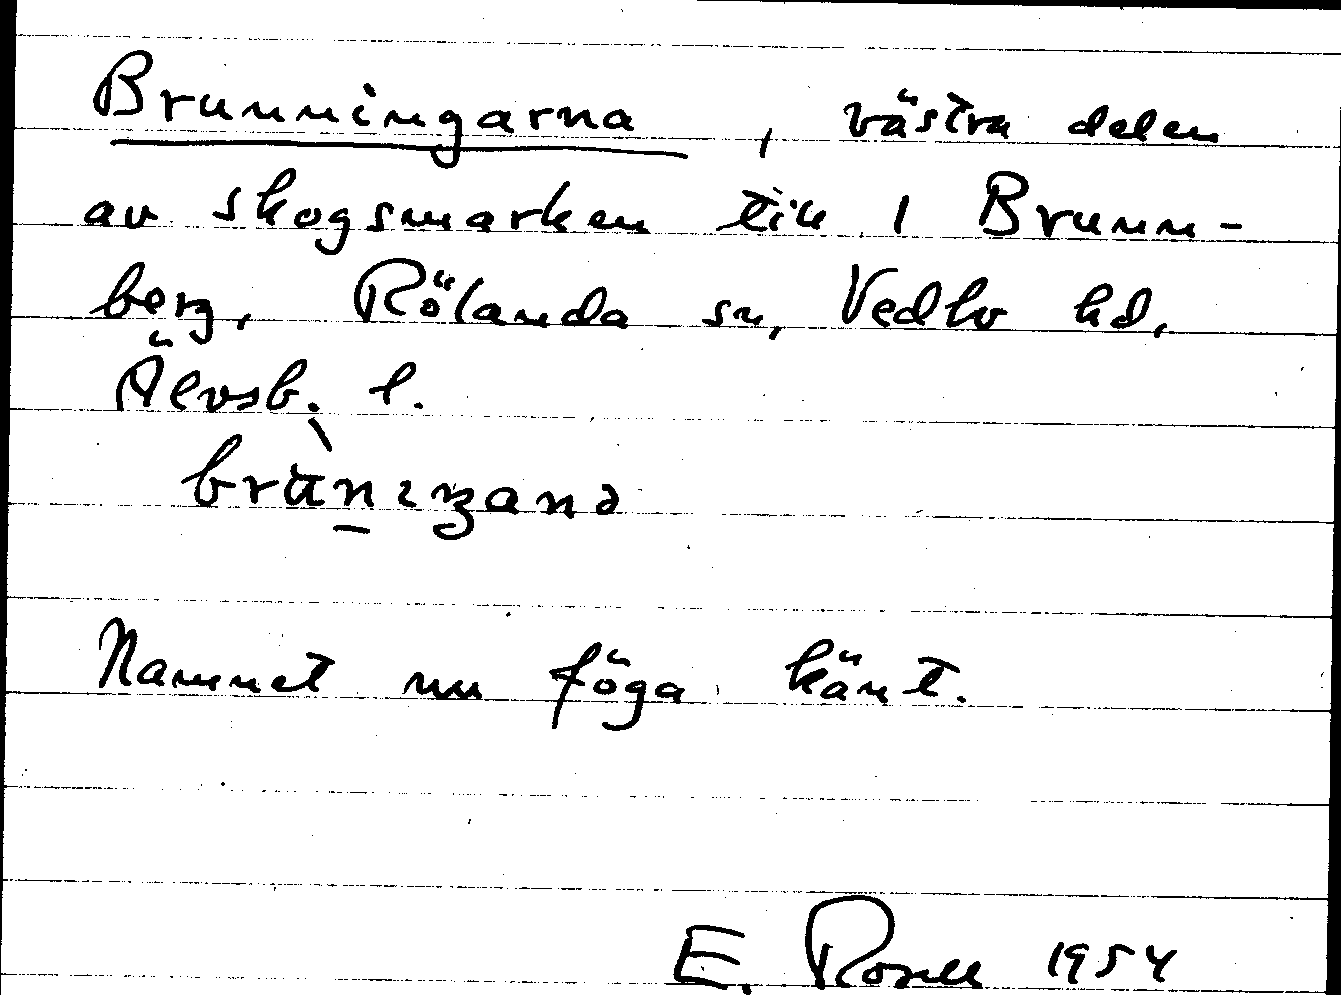 Brunningarna, västra delen
av skogsmarken till 1 Brunn-
berg, Rölanda sn, Vedbo hd,
Älvsb. l.
Namnet nu föga känt.
E. Rosell 1954